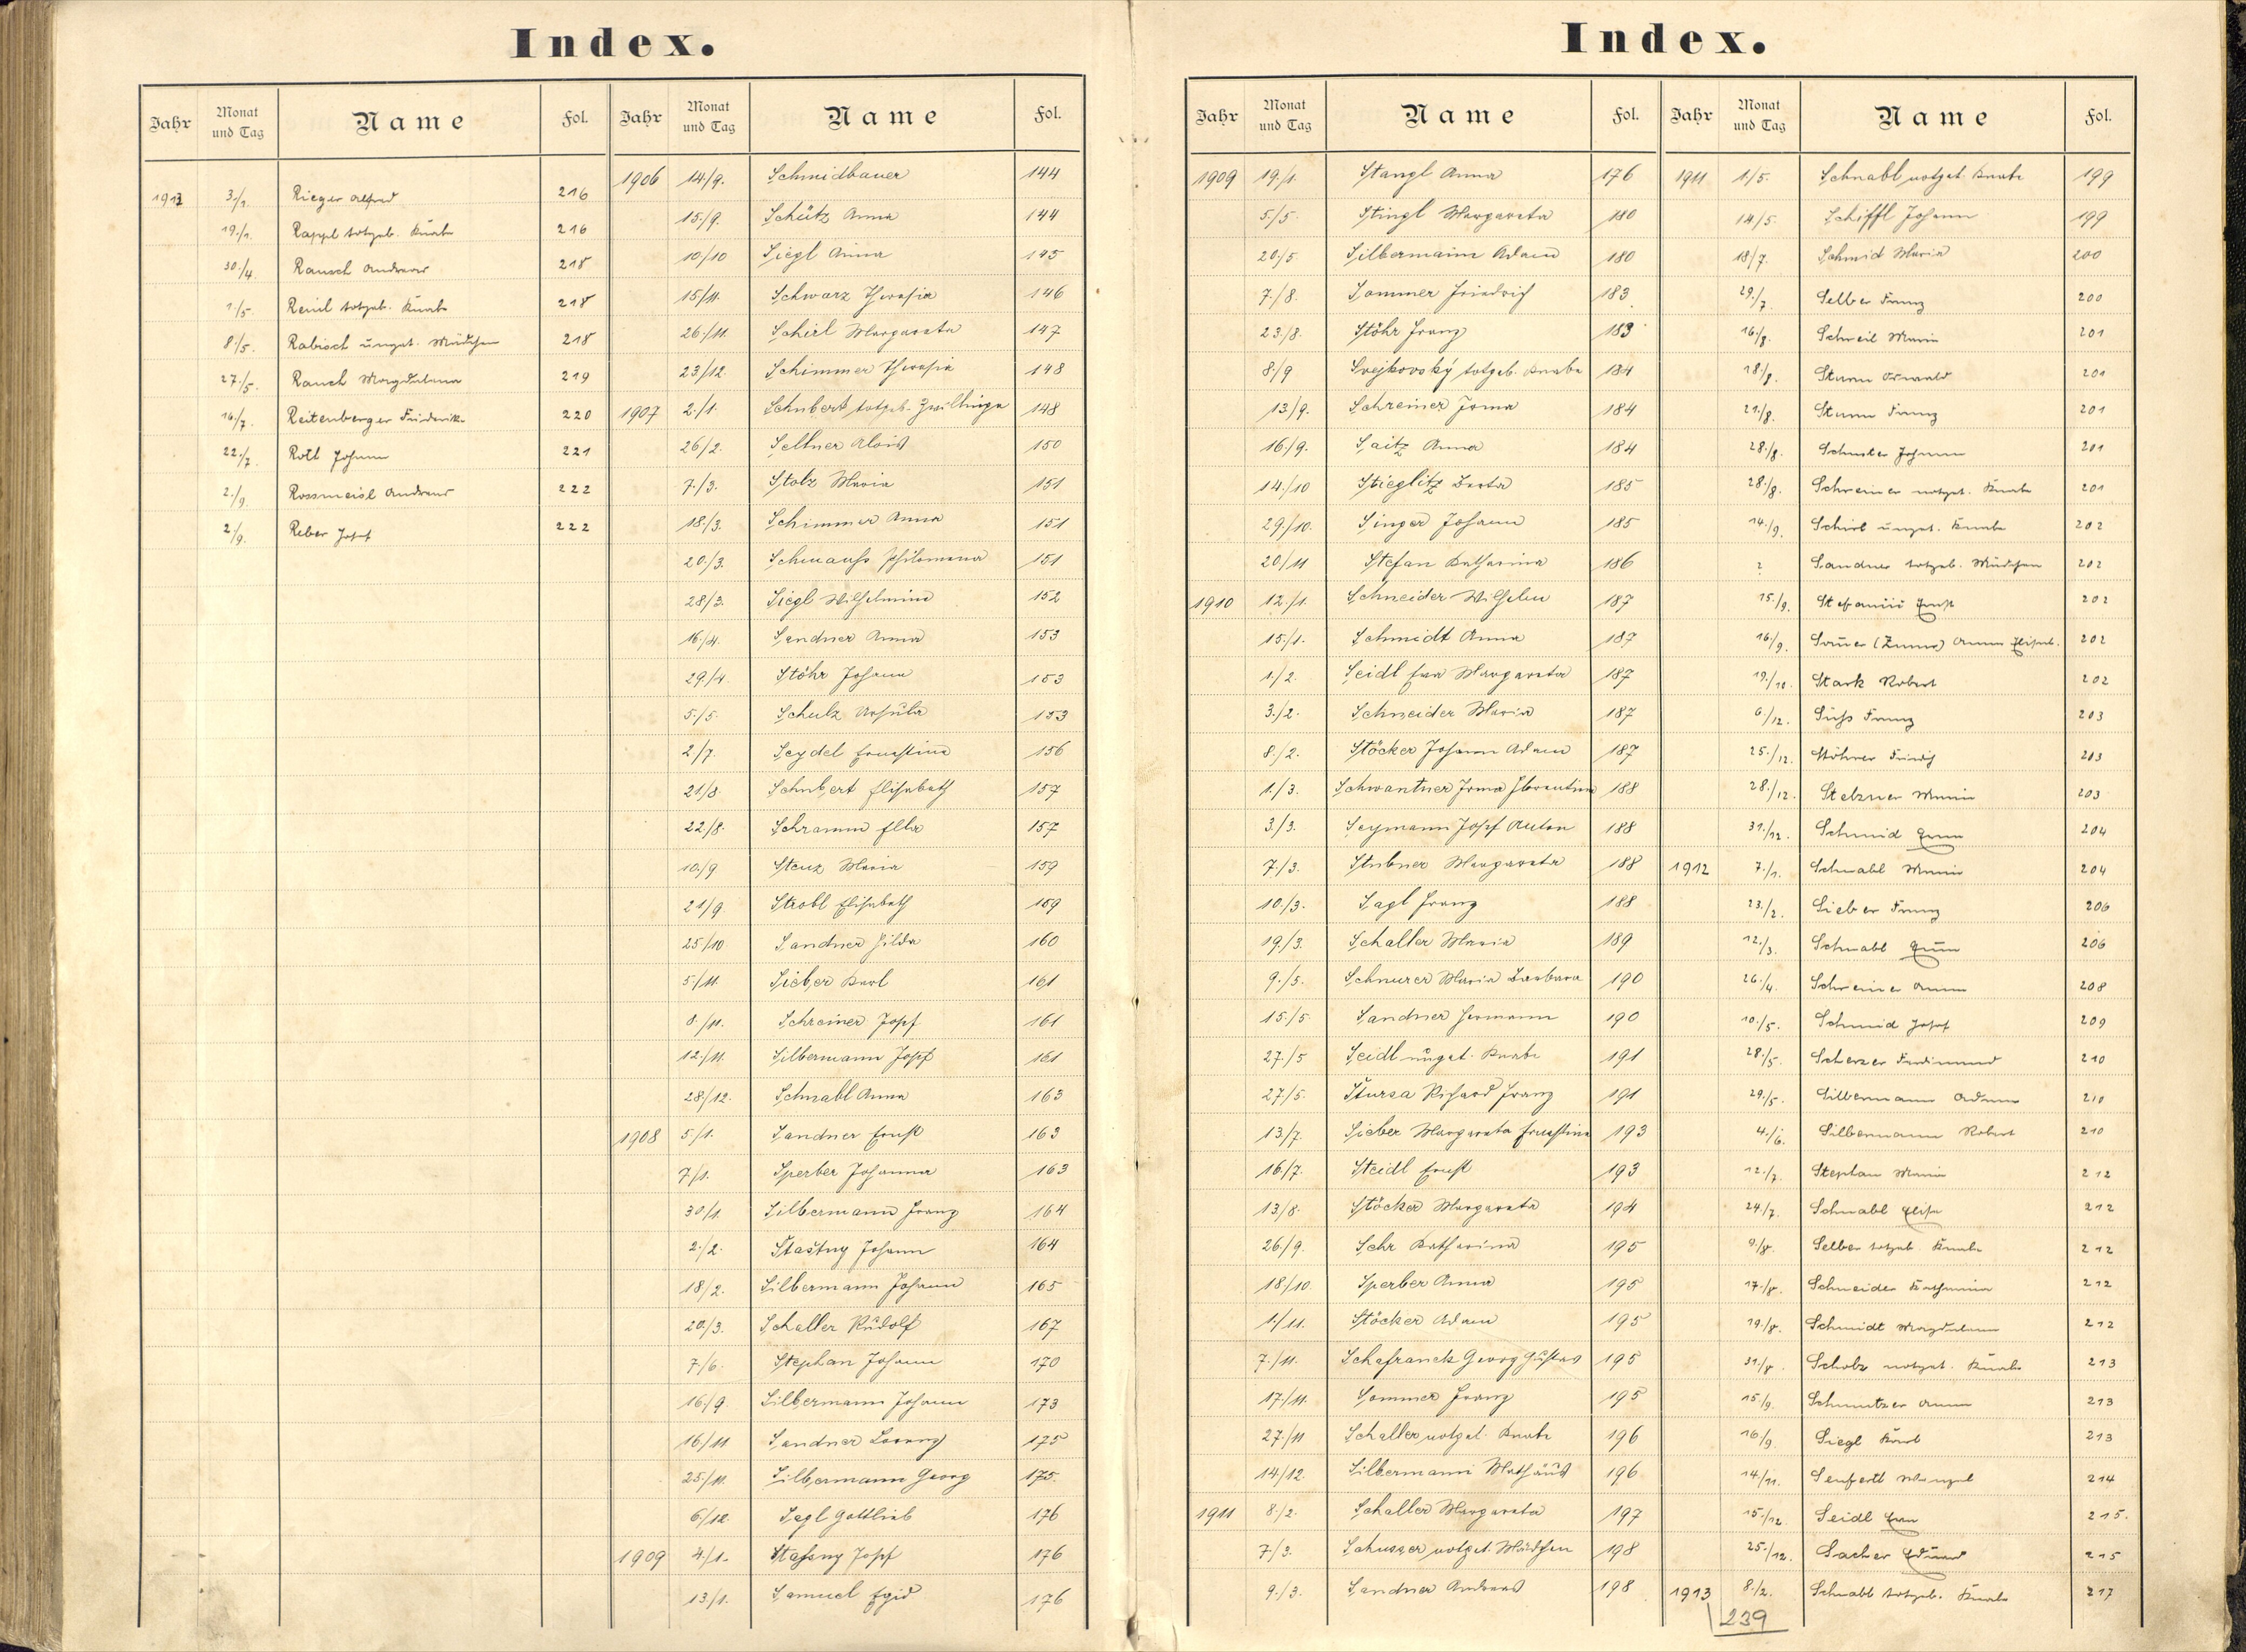 Index.
Jahr Monat und Tag Name Fol. Jahr Monat und Tag Name Fol.
1913 3./1. Rieger Alfred 216
19./1. Rappl totgeb. Knabe 216
30./4. Rausch Andreas 218
1./5. Reinl totgeb. Knabe 218
8./5. Rabisch ungt. Mädchen 218
27./5. Rauch Magdalena 219
16./7. Reitenberger Friederike 220
22./7. Rotl Johann 221
2./9. Rossmeisl Andreas 222
2./9. Reber Josef 222
1906 14./9. Schmidbauer 144
15./9. Schütz Anna 144
10/10 Siegl Anna 145
15/11. Schwarz Theresia 146
26./11. Schirl Margareta 147
23/12. Schimmer Theresia 148
1907 2./1. Schubert totgeb. Zwillinge 148
26/2. Seltner Alois 150
7./3. Stolz Maria 151
18./3. Schimmer Anna 151
20./3. Schmauss Philomena 151
28/3. Siegl Wilhelmine 152
16./4. Sandner Anna 153
29./4. Stöhr Johann 153
5./5. Schulz Ursula 153
2/7. Seydel Ernestine 156
21/8. Schubert Elisabeth 157
22/8. Schramm Ella 157
10./9 Stenz Maria 159
21/9 Strobl Elisabeth 159
25/10 Sandner Hilda 160
5/11. Sieber Karl 161
8./11. Schreiner Josef 161
12./11. Silbermann Josef 161
28./12. Schnabl Anna 163
1908 5/1. Sandner Ernst 163
7/1. Sperber Johanna 163
30./1. Silbermann Franz 164
2./2. Šťastny Johann 164
18/2. Silbermann Johann 165
20./3. Schaller Rudolf 167
7./6. Stephan Johann 170
16./9. Silbermann Johann 173
16./11 Sandner Lorenz 175
25./11. Silbermann Georg 175
6./12. Sagl Gottlieb 176
1909 4./1. Stassny Josef 176
13./1. Samuel Egid 176
Index.
Jahr Monat und Tag Name Fol. Jahr Monat und Tag Name Fol.
1909 19./1. Stangl Anna 176
5./5. Stingl Margareta 180
20./5 Silbermann Adam 180
7./8. Sommer Friedrich 183
23./8. Stöhr Franz 183
8./9 Svejkovský totgeb. Knabe 184
13./9. Schreiner Irma 184
16./9. Saitz Anna 184
14./10 Stieglitz Berta 185
29./10. Singer Johann 185
20/11 Stefan Katharina 186
1910 12./1. Schneider Wilhelm 187
15./1. Schmidt Anna 187
1./2. Seidl Eva Margareta 187
3./2. Schneider Maria 187
8./2. Stöcker Johann Adam 187
1./3. Schwantner Irma Florentine 188
3./3. Seymann Josef Anton 188
7./3. Stubner Margareta 188
10./3. Sagl Franz 188
19./3. Schaller Maria 189
9./5. Schnurer Maria Barbara 190
15./5 Sandner Hermann 190
27./5 Seidl ungt. Knabe 191
27./5. Štursa Richard Franz 191
13./7. Sieber Margareta Ernestine 193
16./7. Steidl Ernst 193
13./8. Stöcker Margareta 194
26./9. Sehr Katharina 195
18./10. Sperber Anna 195
1./11. Stöcker Adam 195
7./11. Schafranek Georg Gustav 195
17./11. Sommer Franz 195
27./11 Schaller notget. Knabe 196
14/12. Silbermann Mathäus 196
1911 8./2. Schaller Margareta 197
7./3. Schusser notget. Mädchen 198
9./3. Sandner Andreas 198
1911 1./5. Schnabl notget. Knabe 199
14/5. Schiffl Johann 199
18/7. Schmid Maria 200
29./7 Selber Franz 200
16./8. Schreil Maria 201
18./8. Sturm Oswald 201
21./8. Sturm Franz 201
28./8. Schuster Johann 201
28./8. Schreiner notget. Knabe 201
14./9. Schirl ungt. Knabe 202
? Sandner totgeb. Mädchen 202
15./9. Ernst 202
16./9. (Zuner) Anna Elisab. 202
19./10. Stark Robert 202
6./12. Süss Franz 203
25./12. Stöhrer 203
28./12. Stelzner Maria 203
31./12. Schmid 204
1912 7./1. Schnabl Maria 204
23./2. Sieber Franz 206
12./3. Schnabl 206
26./4. Schreiner Anna 208
10./5. Schmid Josef 209
28./5. Scherzer Ferdinand 210
29./5. Silbermann Adam 210
4./6. Silbermann Robert 210
12./7. Stephan Maria 212
24./7. Schnabl Elisa 212
9./8. Selber totgeb. Knabe 212
17./8. Schneider Katharina 212
19./8. Schmidt Magdalena 212
31./8. Scholz notget. Knabe 213
15./9. Schmutzer Anna 213
16./9. Siegl Karl 213
14./11. Senfertl Wenzel 214
15./12. Seidl Eva 215.
25./12. Sacher Eduard 215
1913 8./2. Schnabl totgeb. Knabe 217
239